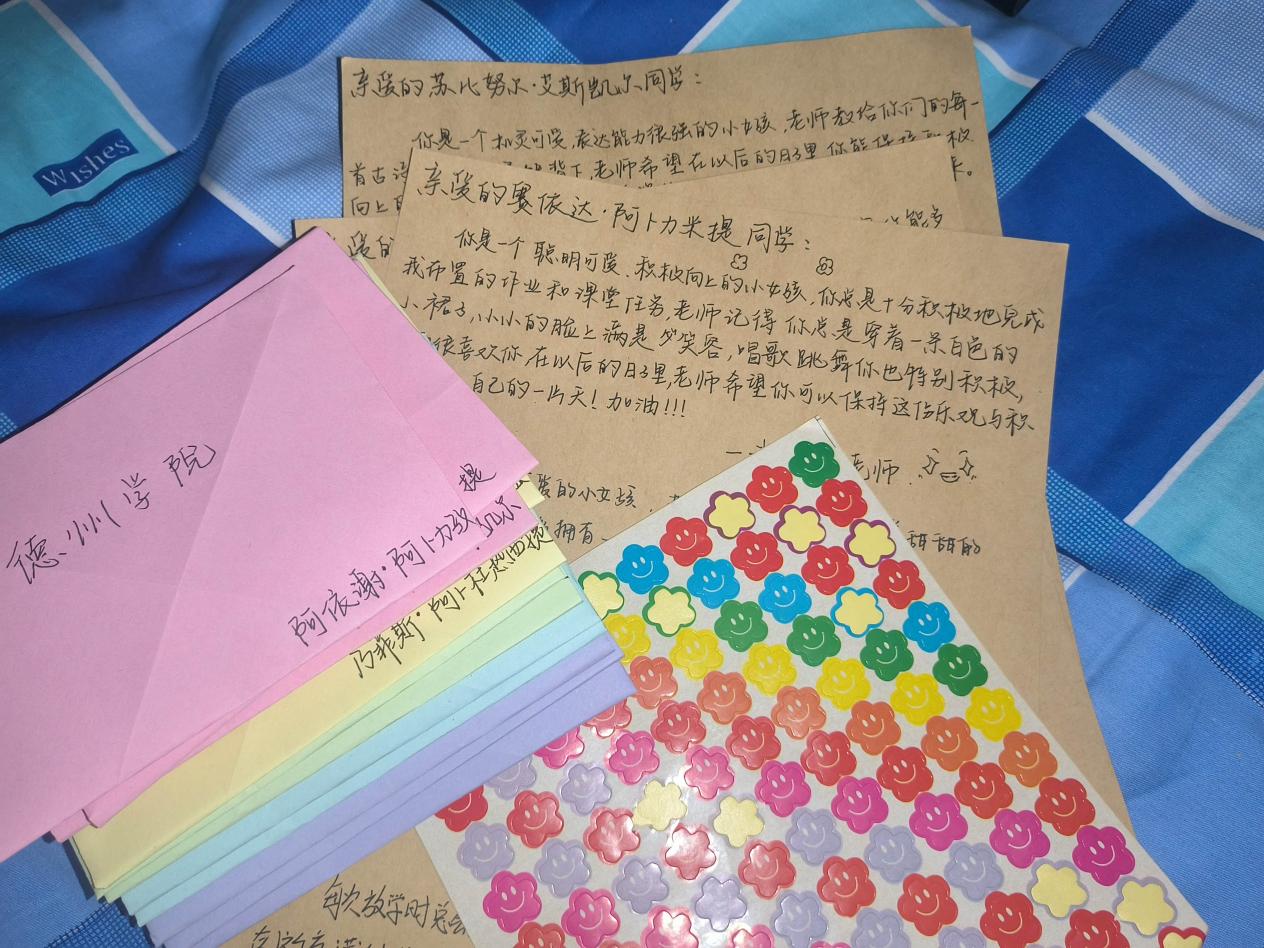 Wishes
亲爱的苏比努尔·艾斯凯尔同学:
你是一个机灵可爱,表达能力很强的小女孩,老师教给你们的每一
首古诗 背下,老师希望在以后的日子里,你能保持
向上的
爱的
亲爱的赛依达·阿卜力米提同学:
你是一个聪明可爱、积极向上的小女孩,你总是十分积极地完成
我布置的作业和课堂任务,老师记得你总是穿着一条白色的
小裙子,小小的脸上满是笑容,唱歌跳舞你也特别积极,
很喜欢你,在以后的日子里,老师希望你可以保持这份乐观与积
自己的一片天!加油!!!
老师
爱的小女孩,
拥有一 甜甜的
德州学院
提
阿依谢·阿卜力
凯尔
乃菲斯·阿卜杜热西提
每次放学时总会